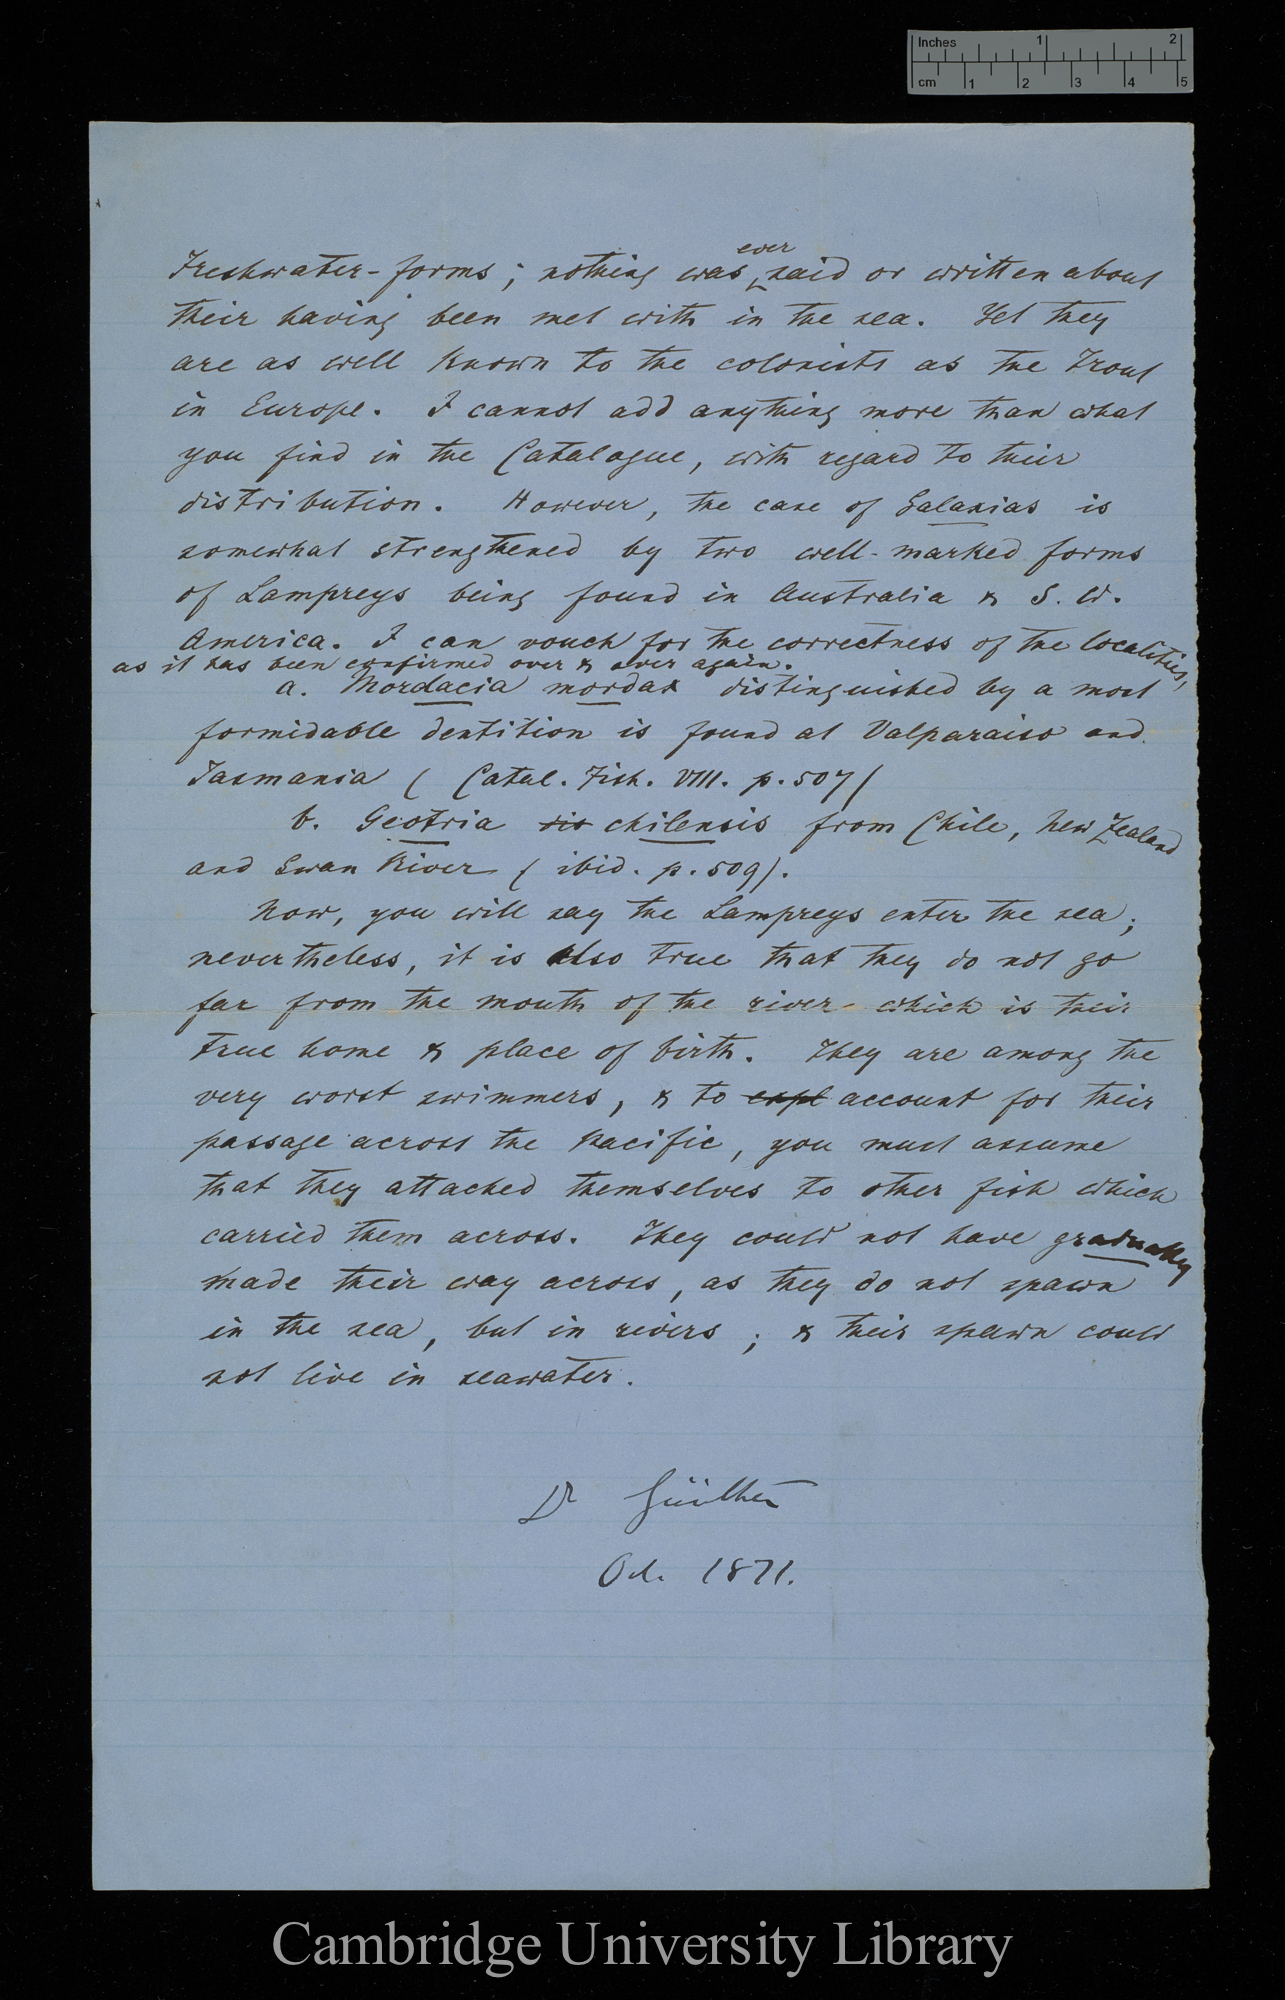 Inches 1 2
cm 1 2 3 4 5
ever
Freshwater-forms; nothing was said or written about
their having been met with in the sea. Yet they
are as well known to the colonists as the Trout
in Europe. I cannot add anything more than what
you find in the Catalogue, with regard to their
distribution. However, the case of Galaxias is
somewhat strengthened by two well-marked forms
of Lampreys being found in Australia & S. W.
America. I can vouch for the correctness of the localities,
as it has been confirmed over & over again.
a. Mordacia mordax distinguished by a most
formidable dentition is found at Valparaiso and
Tasmania ( Catal. Fish. VIII. p. 507)
b. Geotria chilensis from Chile, New Zealand
and Swan River ( ibid. p. 509).
Now, you will say the Lampreys enter the sea;
nevertheless, it is also true that they do not go
far from the mouth of the river which is their
true home & place of birth. They are among the
very worst swimmers, & to expl account for their
passage across the Pacific, you must assume
that they attached themselves to other fish which
carried them across. They could not have gradually
made their way across, as they do not spawn
in the sea, but in rivers; & their spawn could
not live in seawater.
Dr Günther
Oct. 1871.
Cambridge University Library